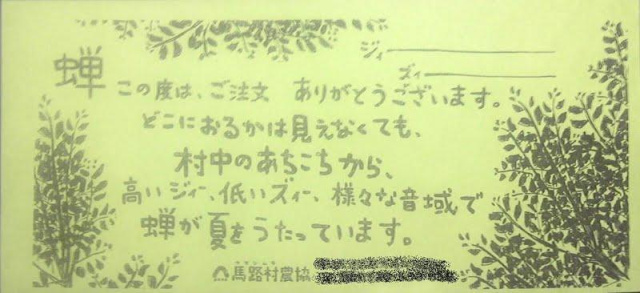 ジィ
ズィ
蝉
この度は、ご注文 ありがとうございます。
どこにおるかは見えなくても、
村中のあちこちから、
高いジィー、低いズィー、様々な音域で
蝉が夏をうたっています。
馬路村農協